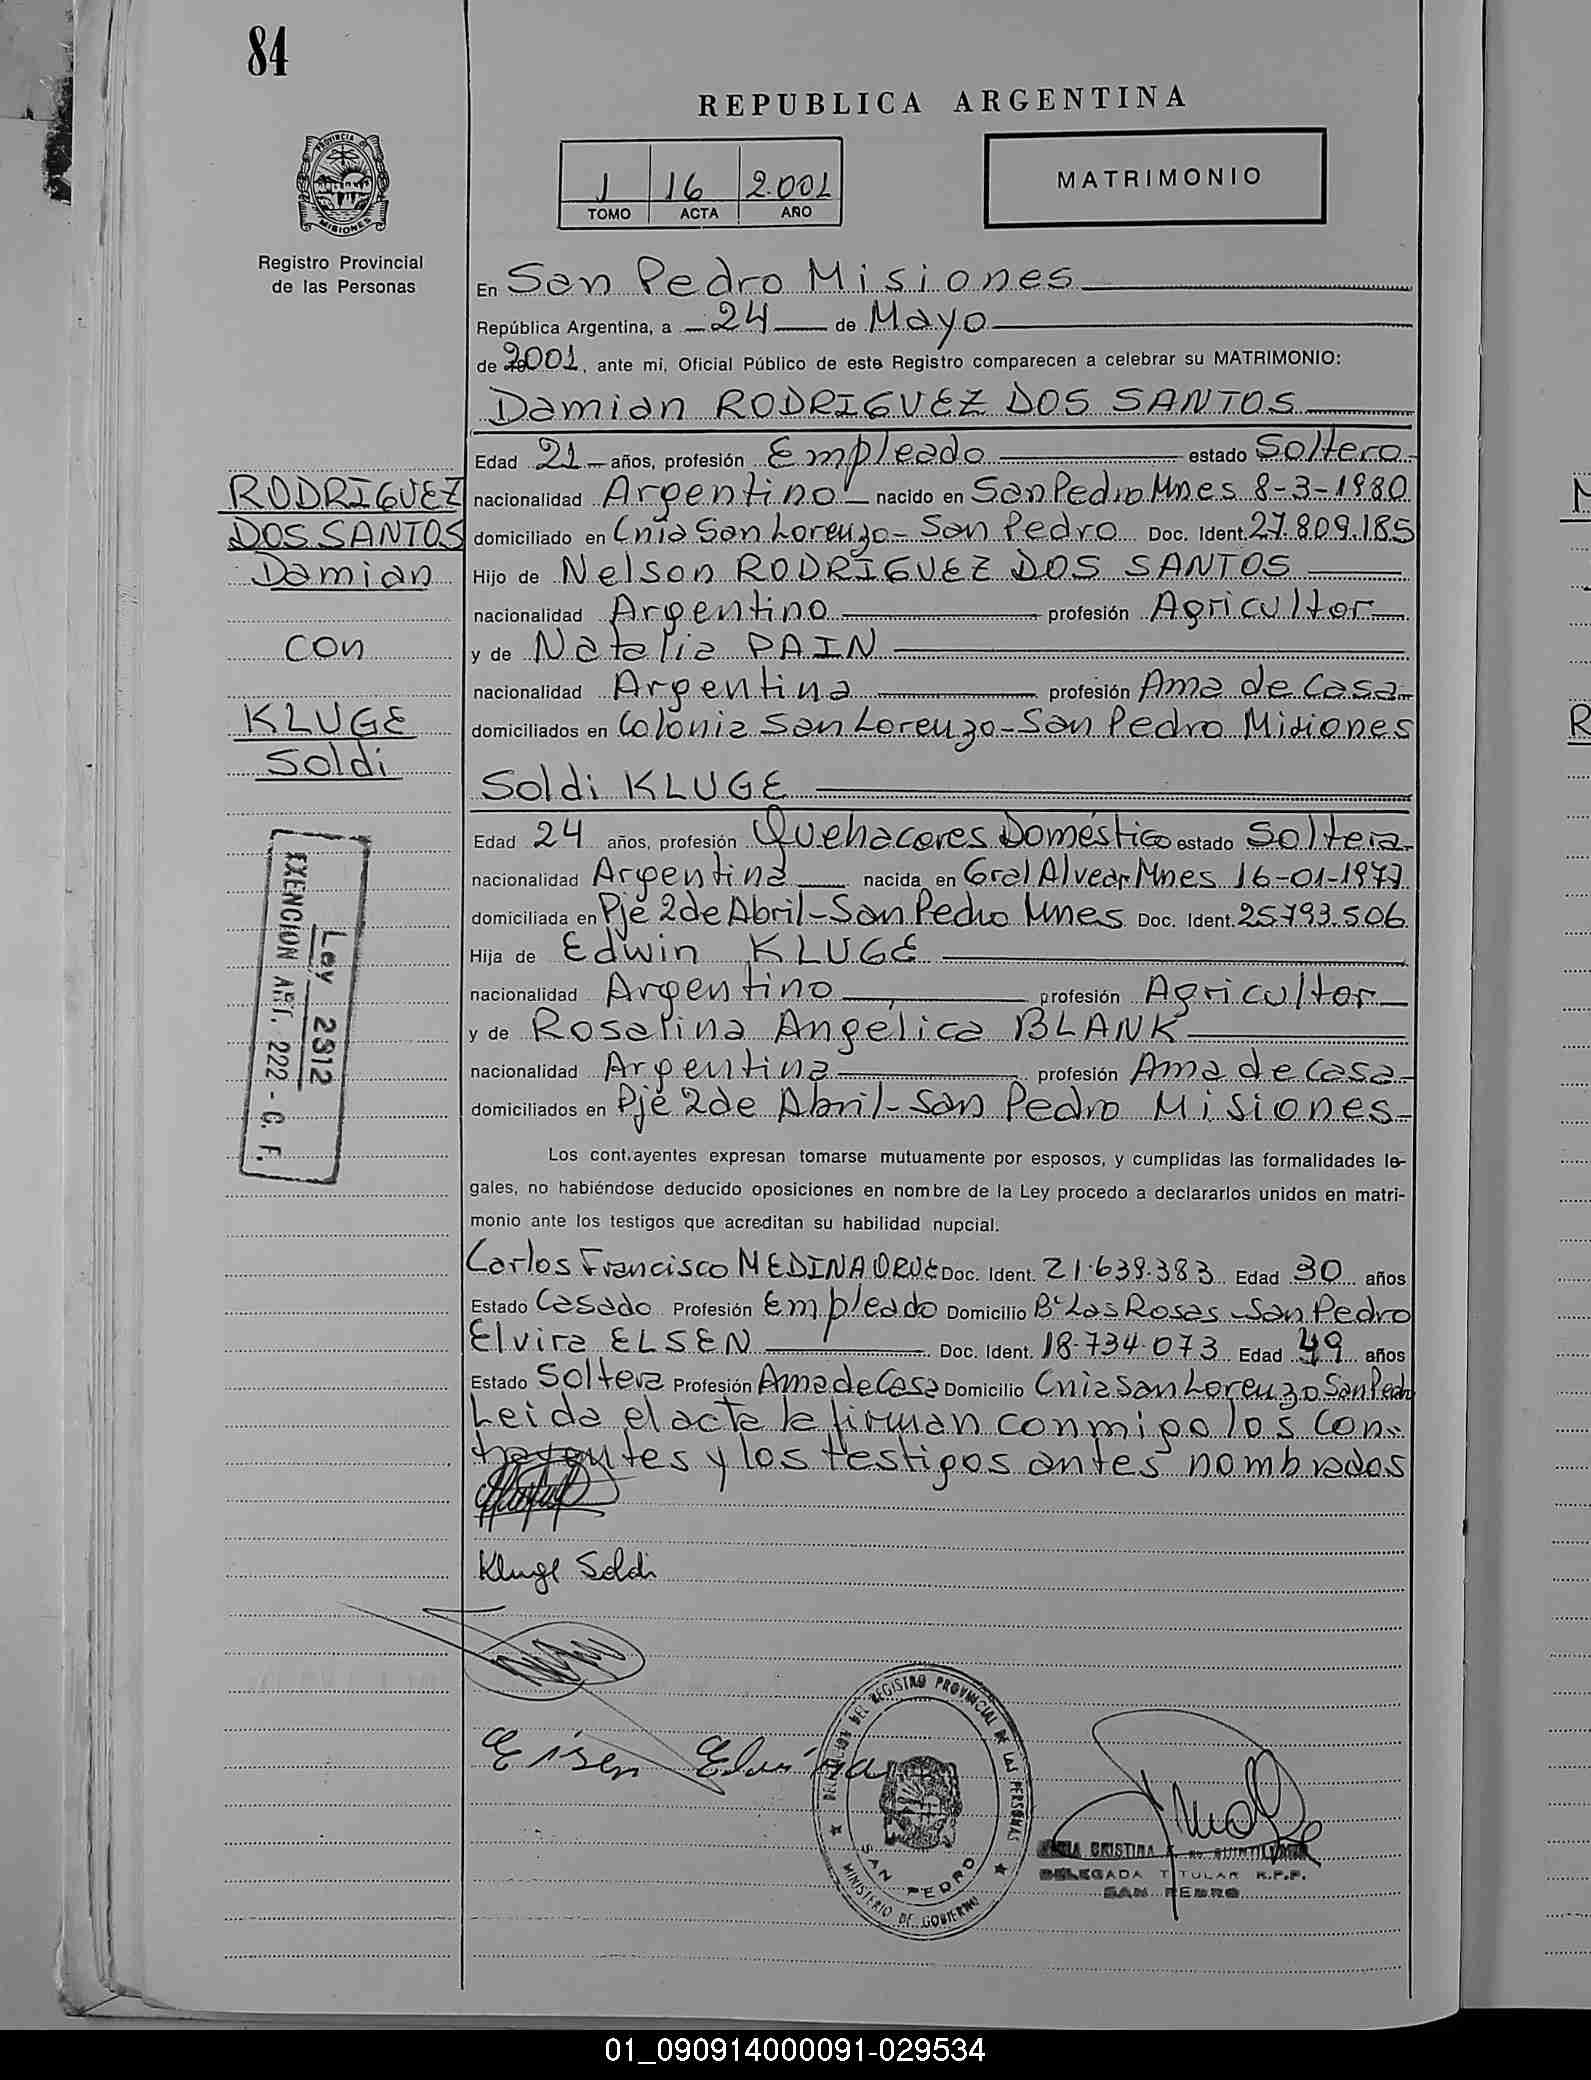 84
REPUBLICA ARGENTINA
PROVINCIA DE
MISIONES
Registro Provincial
de las Personas
1 16 2.001
TOMO ACTA AÑO
MATRIMONIO
En San Pedro Misiones
República Argentina, a 24 de Mayo
de 2001, ante mi, Oficial Público de este Registro comparecen a celebrar su MATRIMONIO:
Damian RODRIGUEZ DOS SANTOS
Edad 21 años, profesión Empleado estado Soltero
nacionalidad Argentino nacido en San Pedro Mnes 8-3-1980
domiciliado en Cnia San Lorenzo - San Pedro Doc. Ident. 27.809.185
Hijo de Nelson RODRIGUEZ DOS SANTOS
nacionalidad Argentino profesión Agricultor
y de Natalia PAIN
nacionalidad Argentina profesión Ama de Casa
domiciliados en Colonia San Lorenzo - San Pedro Misiones
RODRIGUEZ
DOS SANTOS
Damian
con
KLUGE
Soldi
Soldi KLUGE
Edad 24 años, profesión Quehaceres Doméstico estado Soltera
nacionalidad Argentina nacida en Gral Alvear Mnes 16-01-1977
domiciliada en Pje 2 de Abril - San Pedro Mnes Doc. Ident. 25.793.506
Hija de Edwin KLUGE
nacionalidad Argentino profesión Agricultor
y de Rosalina Angélica BLANK
nacionalidad Argentina profesión Ama de Casa
domiciliados en Pje 2 de Abril - San Pedro Misiones
Ley 2312
EXENCION ART. 222 - C. F.
Los cont.ayentes expresan tomarse mutuamente por esposos, y cumplidas las formalidades le-
gales, no habiéndose deducido oposiciones en nombre de la Ley procedo a declararlos unidos en matri-
monio ante los testigos que acreditan su habilidad nupcial.
Carlos Francisco MEDINA ORUE Doc. Ident. 21.639.383 Edad 30 años
Estado Casado Profesión Empleado Domicilio B° Las Rosas - San Pedro
Elvira ELSEN Doc. Ident. 18.734.073 Edad 49 años
Estado Soltera Profesión Ama de Casa Domicilio Cnia San Lorenzo San Pedro
Leida el acta la firman conmigo los con-
trayentes y los testigos antes nombrados
Kluge Soldi
Elsen Elvira
DELEGACION DEL REGISTRO PROVINCIAL DE LAS PERSONAS
SAN PEDRO
MINISTERIO DE GOBIERNO
CRISTINA
DELEGADA TITULAR R.P.P.
SAN PEDRO
01_090914000091-029534